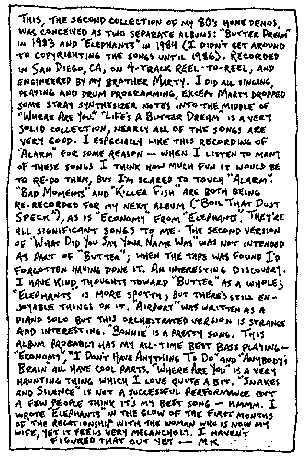 THIS, THE SECOND COLLECTION OF MY 80'S HOME DEMOS,
WAS CONCEIVED AS TWO SEPARATE ALBUMS: "BUTTER DREAM"
IN 1983 AND "ELEPHANTS" IN 1984 (I DIDN'T GET AROUND
TO COPYRIGHTING THE SONGS UNTIL 1986). RECORDED
IN SAN DIEGO, CA, ON 4-TRACK REEL-TO-REEL, AND
ENGINEERED BY MY BROTHER MARTY. I DID ALL SINGING,
PLAYING AND DRUM PROGRAMMING, EXCEPT MARTY DROPPED
SOME STRAY SYNTHESIZER NOTES INTO THE MIDDLE OF
"WHERE ARE YOU." "LIFE'S A BUTTER DREAM" IS A VERY
SOLID COLLECTION, NEARLY ALL OF THE SONGS ARE
VERY GOOD. I ESPECIALLY LIKE THIS RECORDING OF
"ALARM" FOR SOME REASON — WHEN I LISTEN TO MANY
OF THESE SONGS I THINK HOW MUCH FUN IT WOULD BE
TO RE-DO THEM, BUT I'M SCARED TO TOUCH "ALARM."
"BAD MOMENTS" AND "KILLER FISH" ARE BOTH BEING
RE-RECORDED FOR MY NEXT ALBUM ("BOIL THAT DUST
SPECK"), AS IS "ECONOMY" FROM "ELEPHANTS." THEY'RE
ALL SIGNIFICANT SONGS TO ME. THE SECOND VERSION
OF "WHAT DID YOU SAY YOUR NAME WAS" WAS NOT INTENDED
AS PART OF "BUTTER"; WHEN THE TAPE WAS FOUND I'D
FORGOTTEN HAVING DONE IT. AN INTERESTING DISCOVERY.
I HAVE KIND THOUGHTS TOWARD "BUTTER" AS A WHOLE;
"ELEPHANTS" IS MORE SPOTTY, BUT THERE'S STILL EN-
JOYABLE THINGS ON IT. "AIRPORT" WAS WRITTEN AS A
PIANO SOLO BUT THIS ORCHESTRATED VERSION IS STRANGE
AND INTERESTING. "BONNIE" IS A PRETTY SONG. THIS
ALBUM PROBABLY HAS MY ALL-TIME BEST BASS PLAYING—
"ECONOMY," "I DON'T HAVE ANYTHING TO DO" AND "ANYBODY'S
BRAIN" ALL HAVE COOL PARTS. "WHERE ARE YOU" IS A VERY
HAUNTING THING WHICH I LOVE QUITE A BIT. "SNAKES
AND SILENCE" IS NOT A SUCCESSFUL PERFORMANCE BUT
A FEW PEOPLE THINK IT'S MY BEST SONG — HMMM. I
WROTE "ELEPHANTS" IN THE GLOW OF THE FIRST MONTHS
OF THE RELATIONSHIP WITH THE WOMAN WHO IS NOW MY
WIFE, YET IT FEELS VERY MELANCHOLY. I HAVEN'T
FIGURED THAT OUT YET — MK